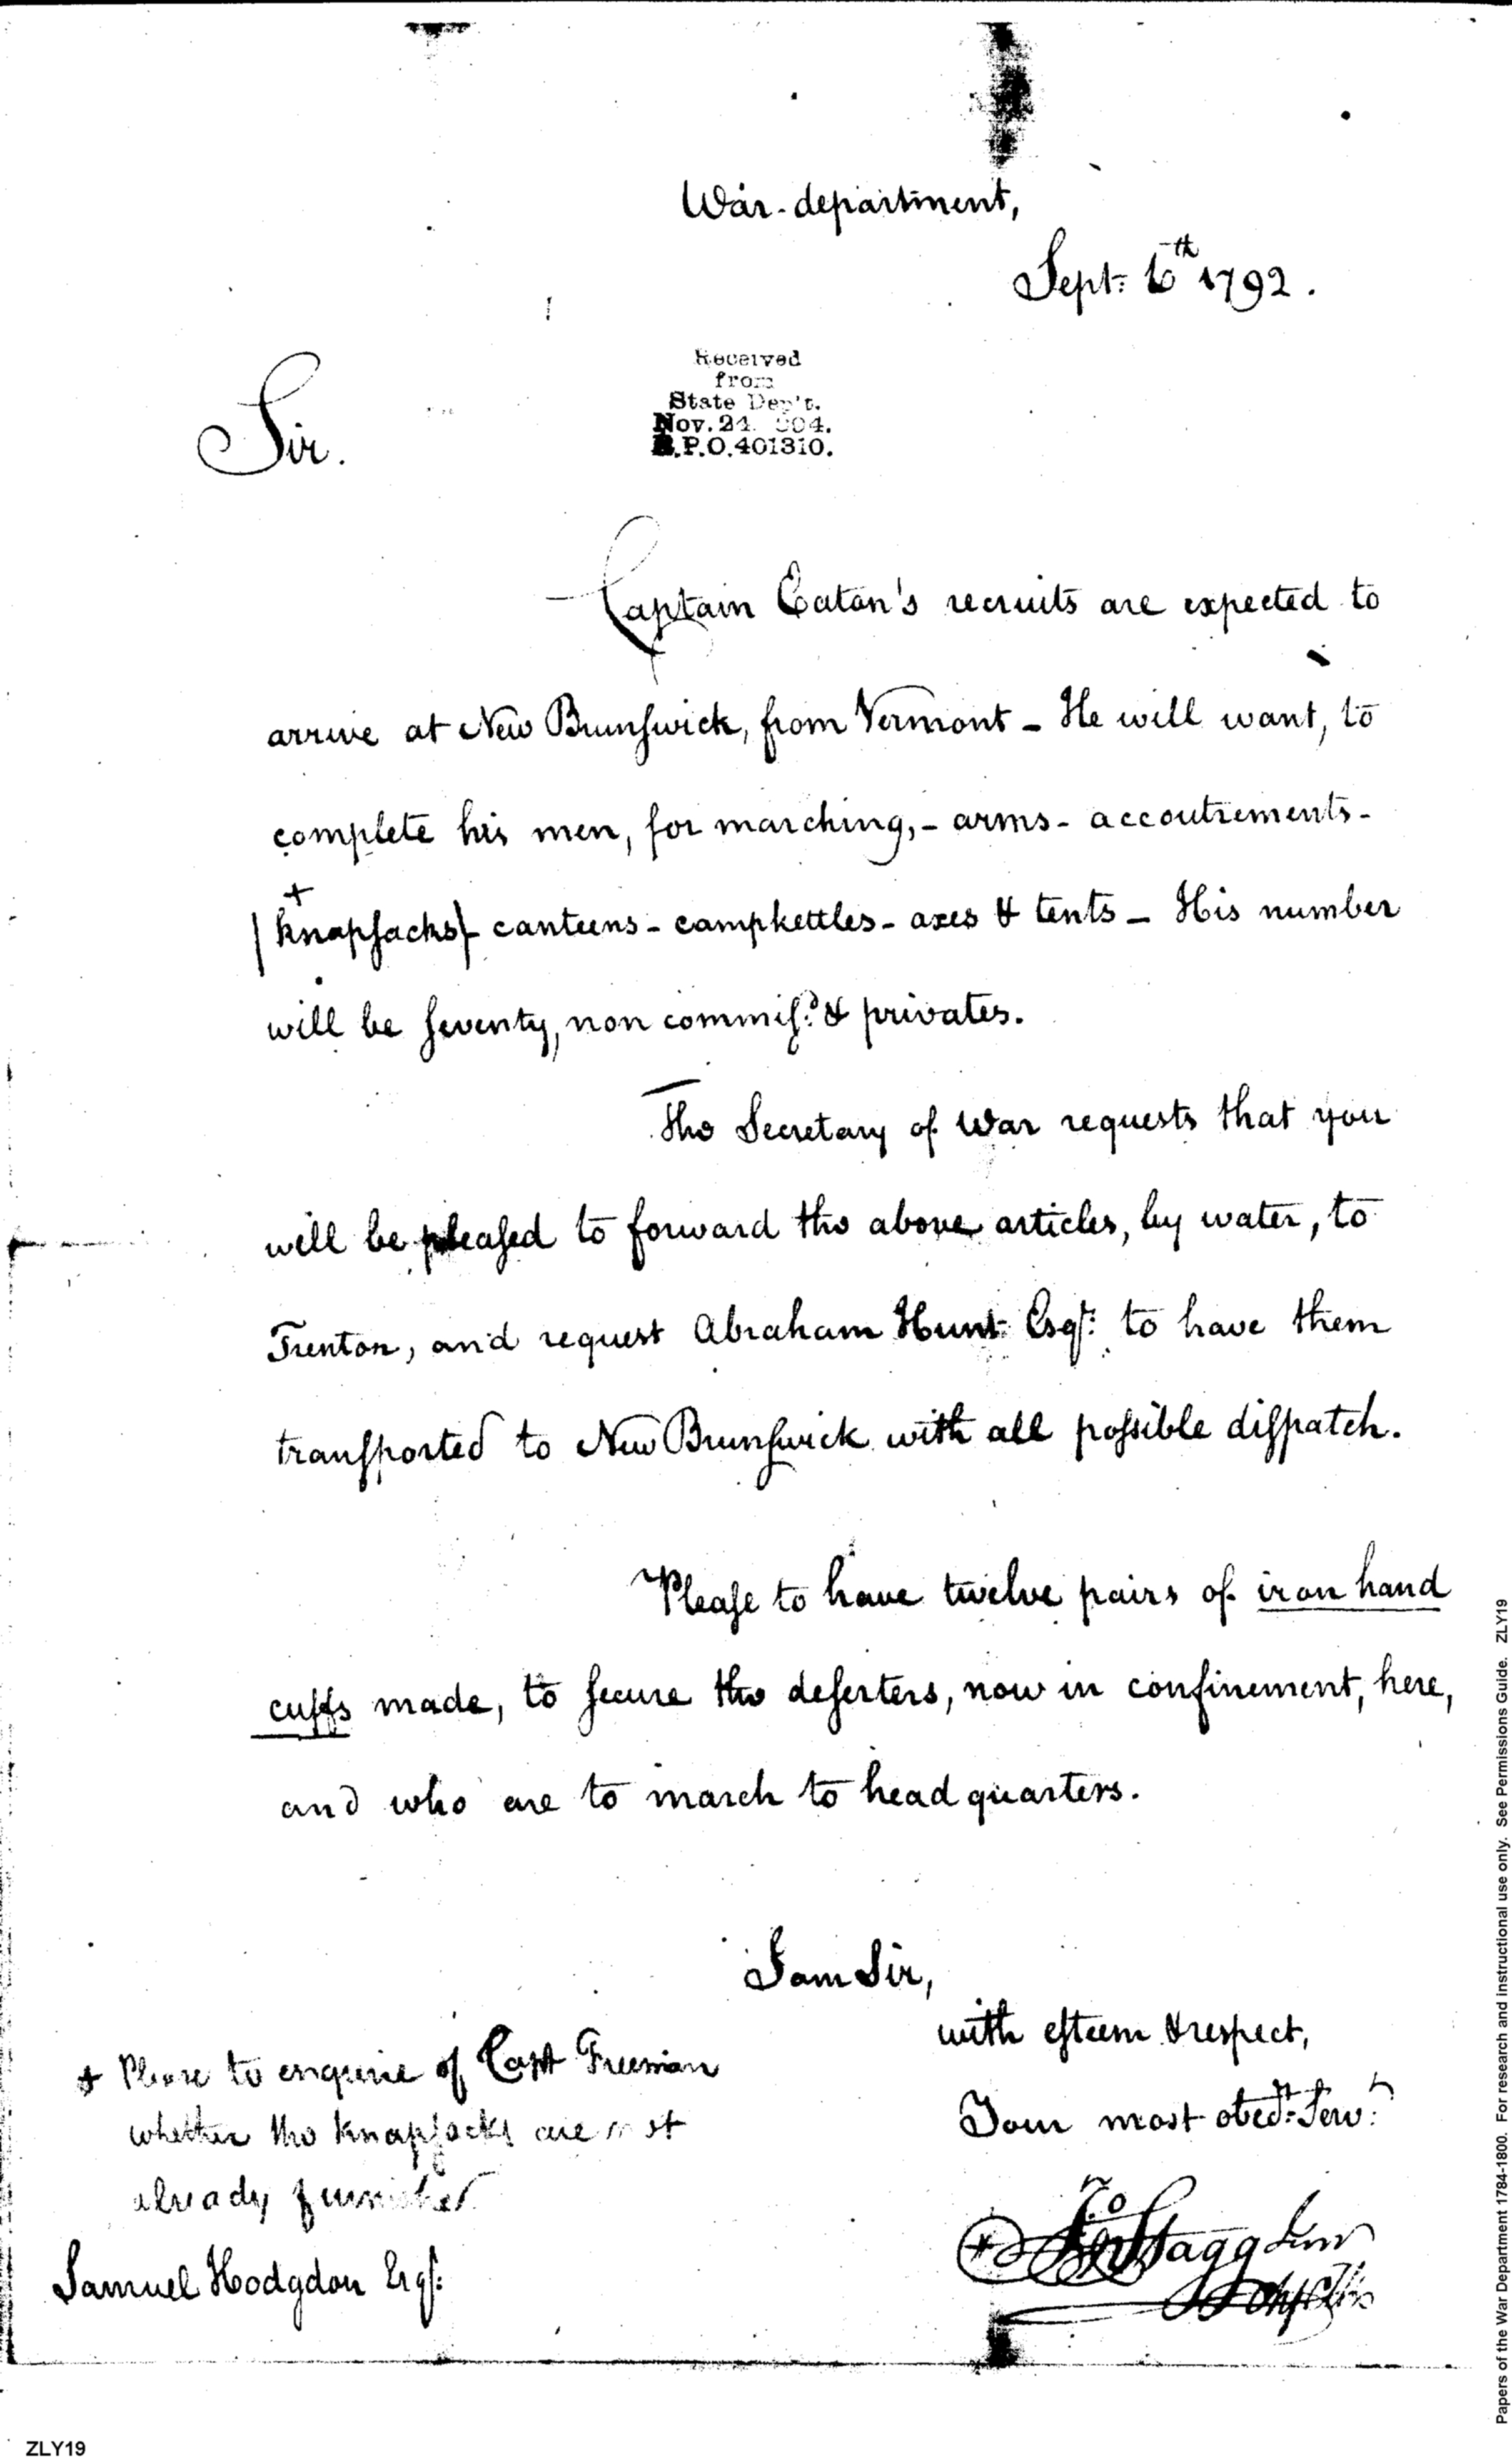 War-department,
Sept: 6th 1792.
Received
from
State Dep't.
Nov. 24. 1904.
R.P.O. 401310.
Sir.
Captain Eaton's recruits are expected to
arrive at New Brunſwick, from Vermont - He will want, to
complete his men, for marching, - arms - accoutrements -
+
(knapſacks) - canteens - campkettles - axes & tents - His number
will be ſeventy, non commiſd. & privates.
The Secretary of War requests that you
will be pleaſed to forward the above articles, by water, to
Trenton, and request Abraham Hunt Esqr: to have them
tranſported to New Brunſwick with all poſsible diſpatch.
Pleaſe to have twelve pairs of iron hand
cuffs made, to ſecure the deſerters, now in confinement, here,
and who are to march to head quarters.
I am Sir,
with eſteem & respect,
Your most obedt: Servt:
Jno Stagg Junr
+ Please to enquire of Capt Freeman
whether the knapſacks are not
already furnished
Samuel Hodgdon Esqr:
ZLY19
Papers of the War Department 1784-1800. For research and instructional use only. See Permissions Guide. ZLY19